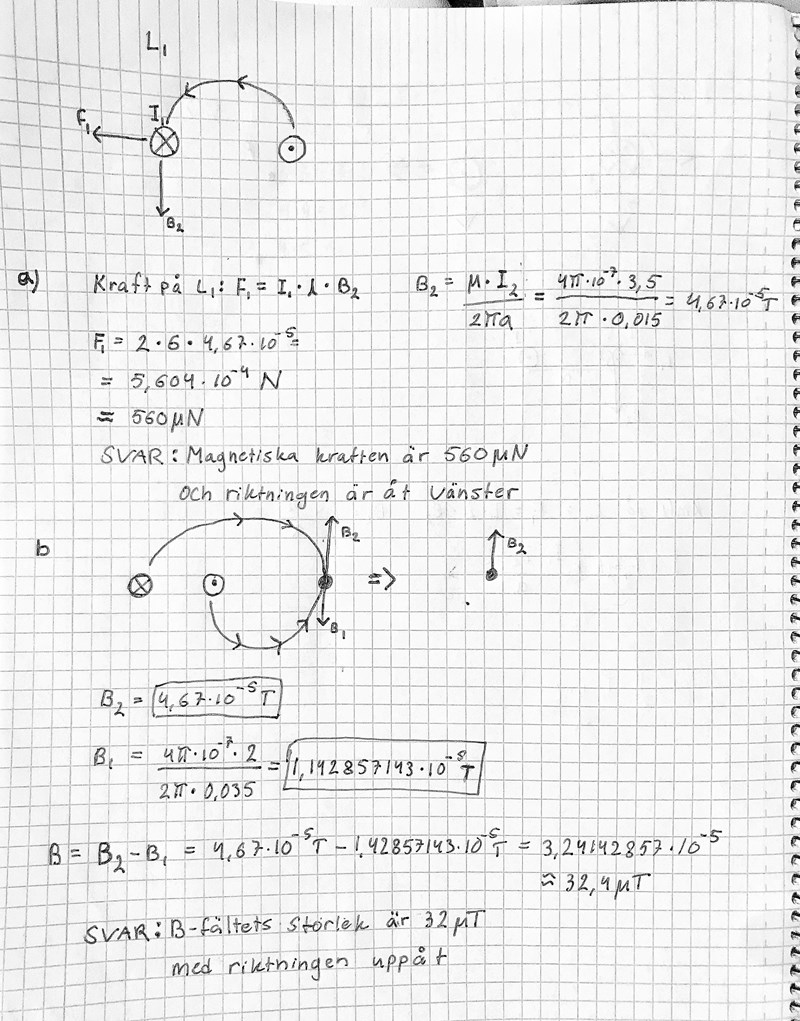 L₁
I₁
F₁
B₂
a) Kraft på L₁: F₁ = I₁ · l · B₂
B₂ = μ · I₂ / 2πa = 4π · 10⁻⁷ · 3,5 / 2π · 0,015 = 4,67 · 10⁻⁵ T
F₁ = 2 · 6 · 4,67 · 10⁻⁵ =
= 5,604 · 10⁻⁴ N
≈ 560 μN
SVAR: Magnetiska kraften är 560 μN
och riktningen är åt vänster
b
B₂
=>
B₂
B₁
B₂ = 4,67 · 10⁻⁵ T
B₁ = 4π · 10⁻⁷ · 2 / 2π · 0,035 = 1,142857143 · 10⁻⁵ T
B = B₂ - B₁ = 4,67 · 10⁻⁵ T - 1,42857143 · 10⁻⁵ T = 3,24142857 · 10⁻⁵
≈ 32,4 μT
SVAR: B-fältets storlek är 32 μT
med riktningen uppåt